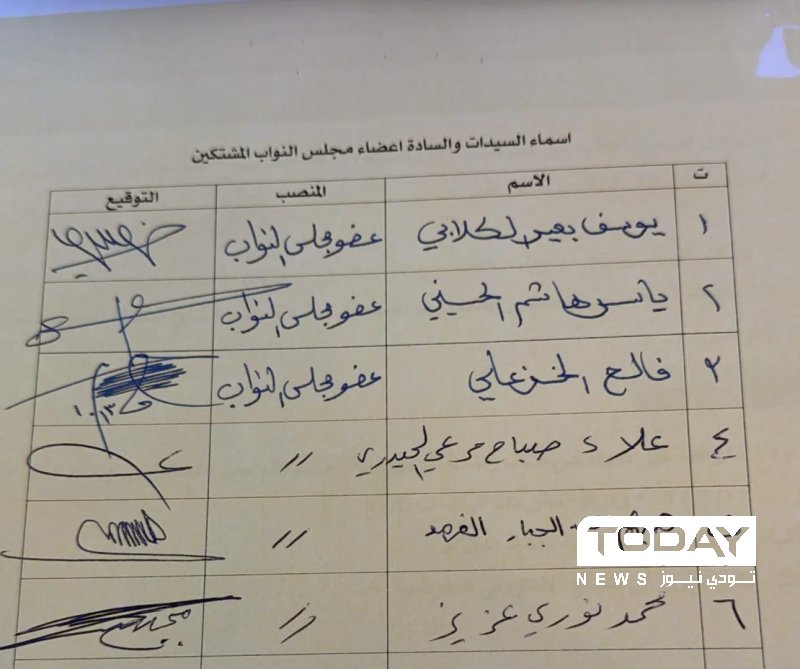 اسماء السيدات والسادة اعضاء مجلس النواب المشتكين
ت الاسم المنصب التوقيع
١ يوسف بعير الكلابي عضو مجلس النواب
٢ ياسر هاشم الحسيني عضو مجلس النواب
٣ فالح الخزعلي عضو مجلس النواب
٤ علاء صباح مرعي الحيدري //
الجبار الفهد //
٦ محمد نوري عزيز //
TODAY
NEWS تودي نيوز